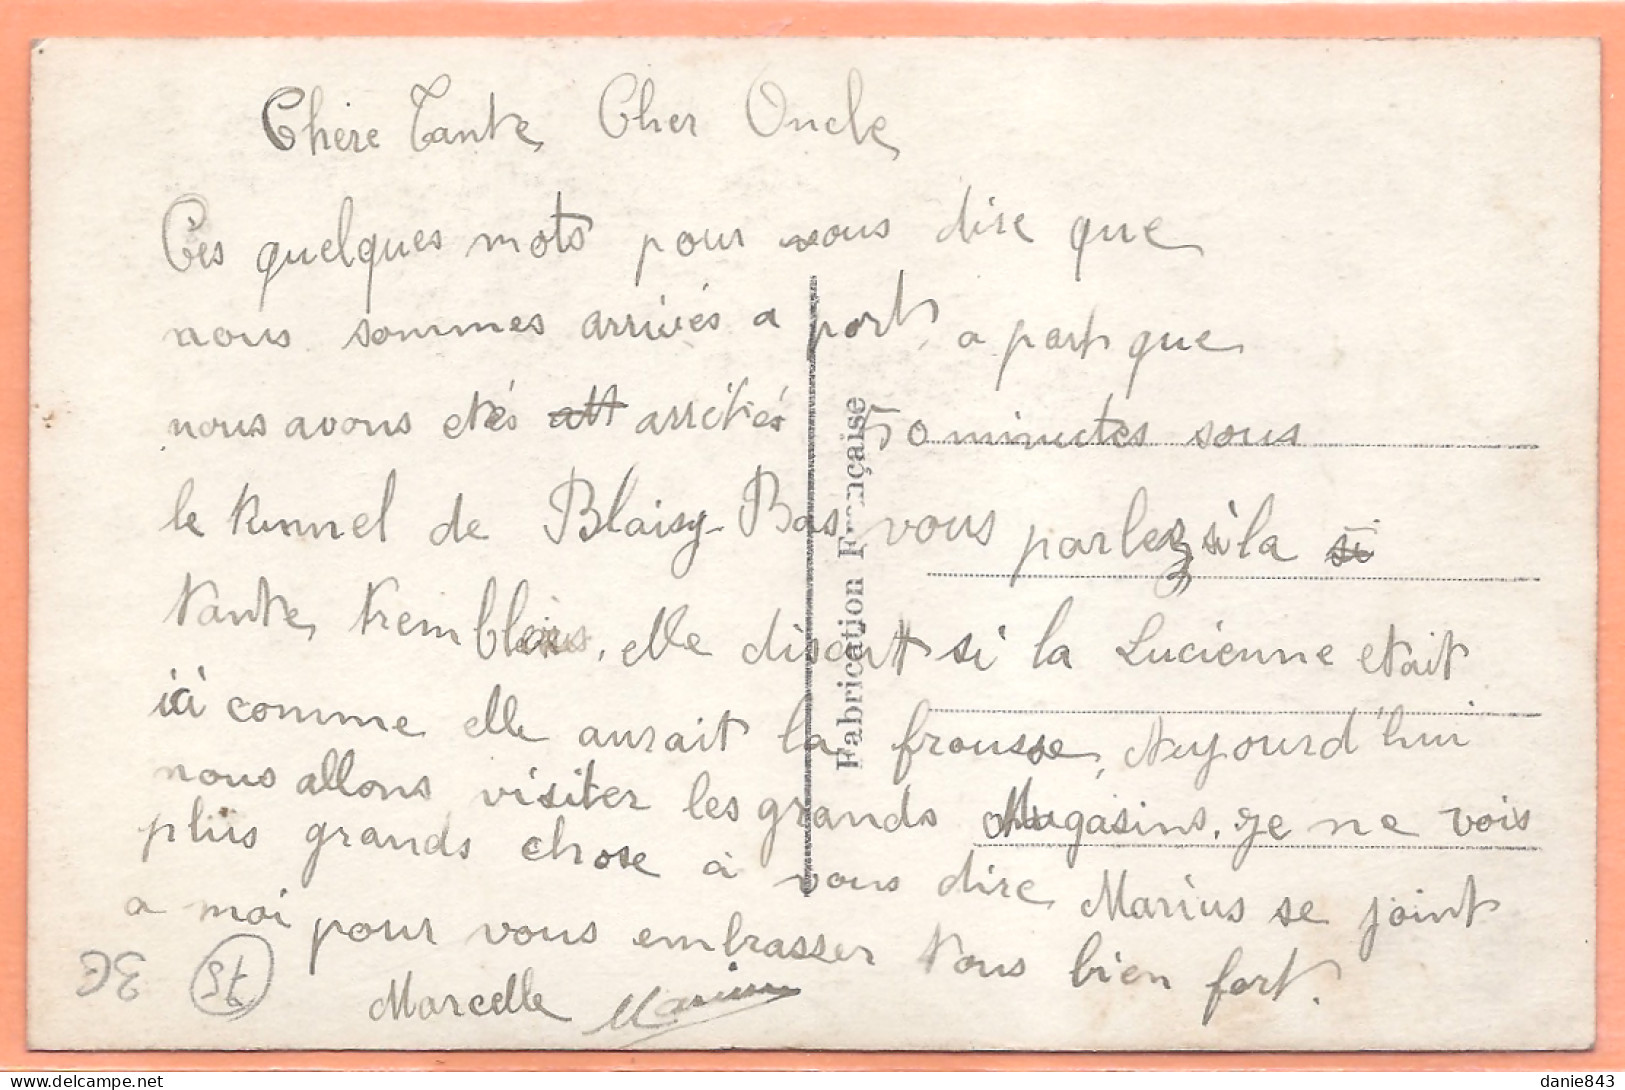 Chère Tante, Cher Oncle,
Ces quelques mots pour vous dire que
nous sommes arrivés a port, a part que
nous avons etés att arrétiés 50 minutes sous
le tunnel de Blaisy-Bas, vous parlez si la si
tante, tremblais, elle disait si la Lucienne etait
ici comme elle aurait la frousse, Aujourd'hui
nous allons visiter les grands Magasins. je ne vois
plus grands chose à vous dire, Marius se joint
a moi pour vous embrasser tous bien fort.
Marcelle Marius
3€ 75
Fabrication Française
danie843